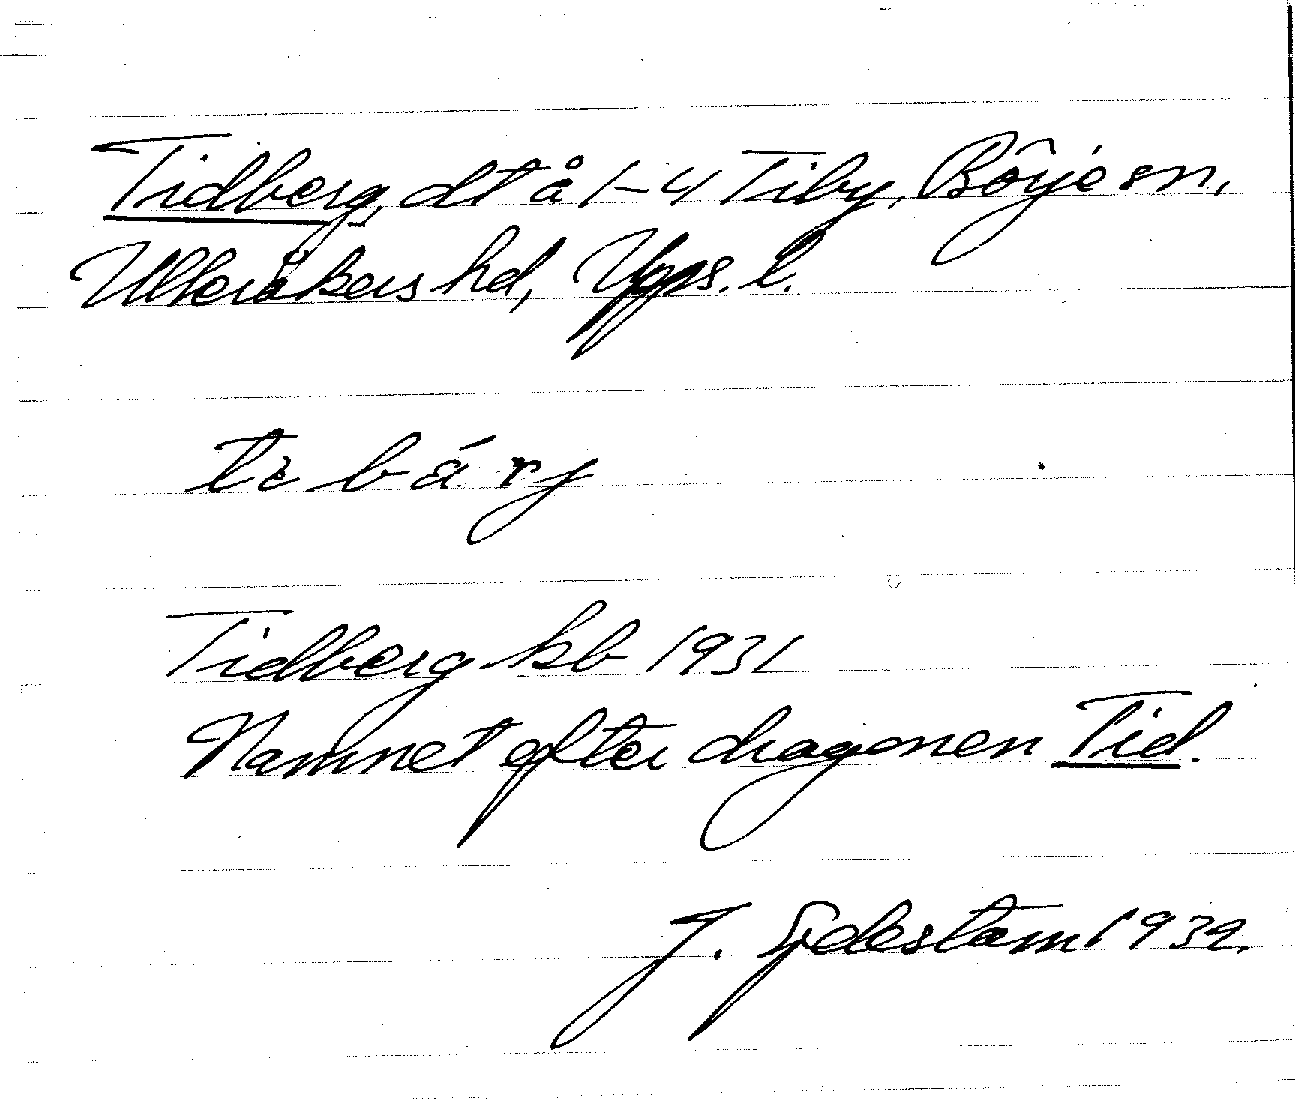 Tidberg, dt å 1-4 Tiby, Börje sn,
Ulleråkers hd, Upps. l.
Tidberg kb 1931
Namnet efter dragonen Tid.
J. Sjdestam 1932.